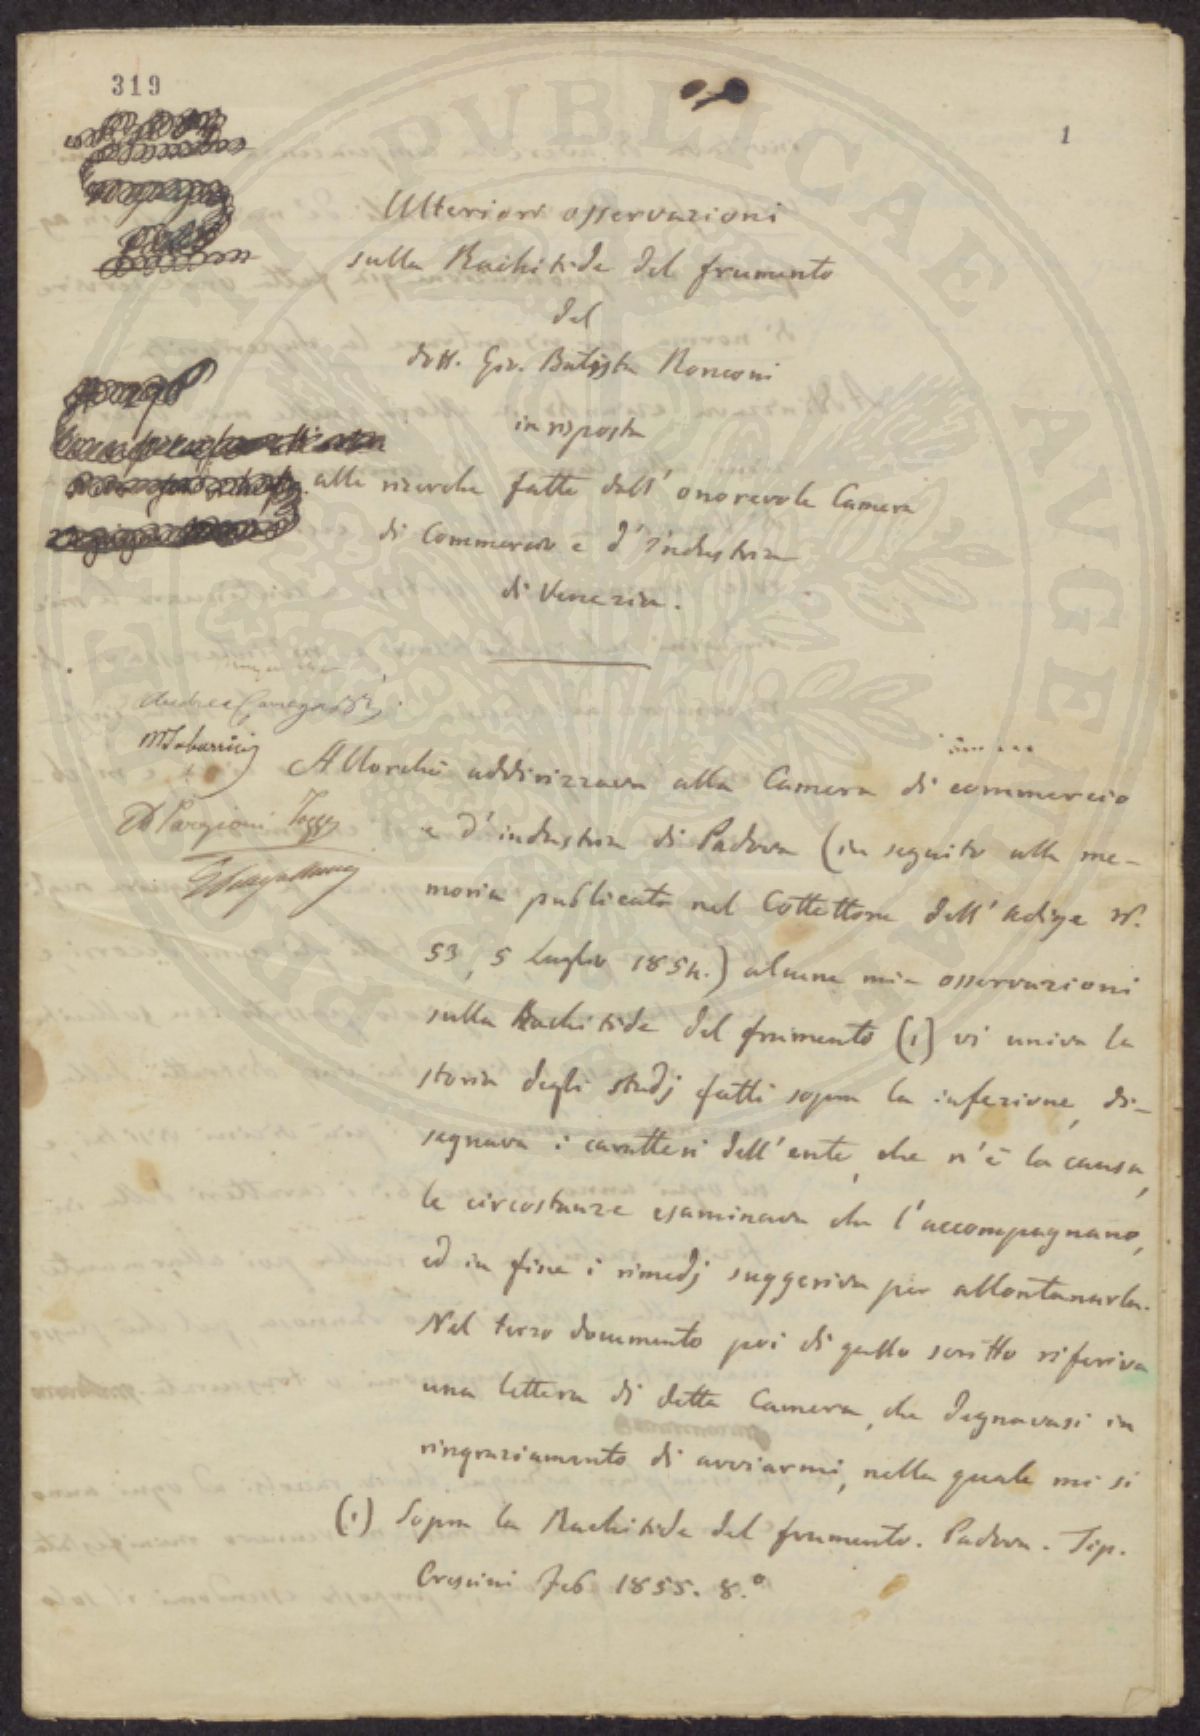 319
1
Ulteriori osservazioni
sulla Rachitide del frumento
del
dott. Gio. Batista Ronconi
in risposta
alle ricerche fatte dall' onorevole Camera
di Commercio e d' industria
di Venezia.
Allorchè addirizzava alla Camera di commercio
e d' industria di Padova (in seguito alla me-
moria publicata nel Collettore dell' Adige N.
53, 5 Luglio 1854.) alcune mie osservazioni
sulla Rachitide del frumento (1) vi univa la
storia degli studj fatti sopra la infezione, di-
segnava i caratteri dell' ente, che n' è la causa,
le circostanze esaminava che l' accompagnano,
ed in fine i rimedj suggeriva per allontanarla.
Nel terzo documento poi di quello scritto riferiva
una lettera di detta Camera, che degnavasi in
ringraziamento di avviarmi, nella quale mi si
(1) Sopra la Rachitide del frumento. Padova. Tip.
Crescini Feb 1855. 8.º